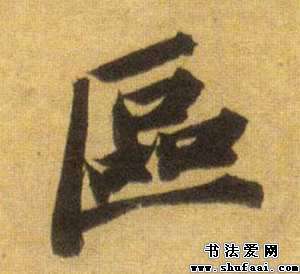 區
书法爱网
www.shufaai.com